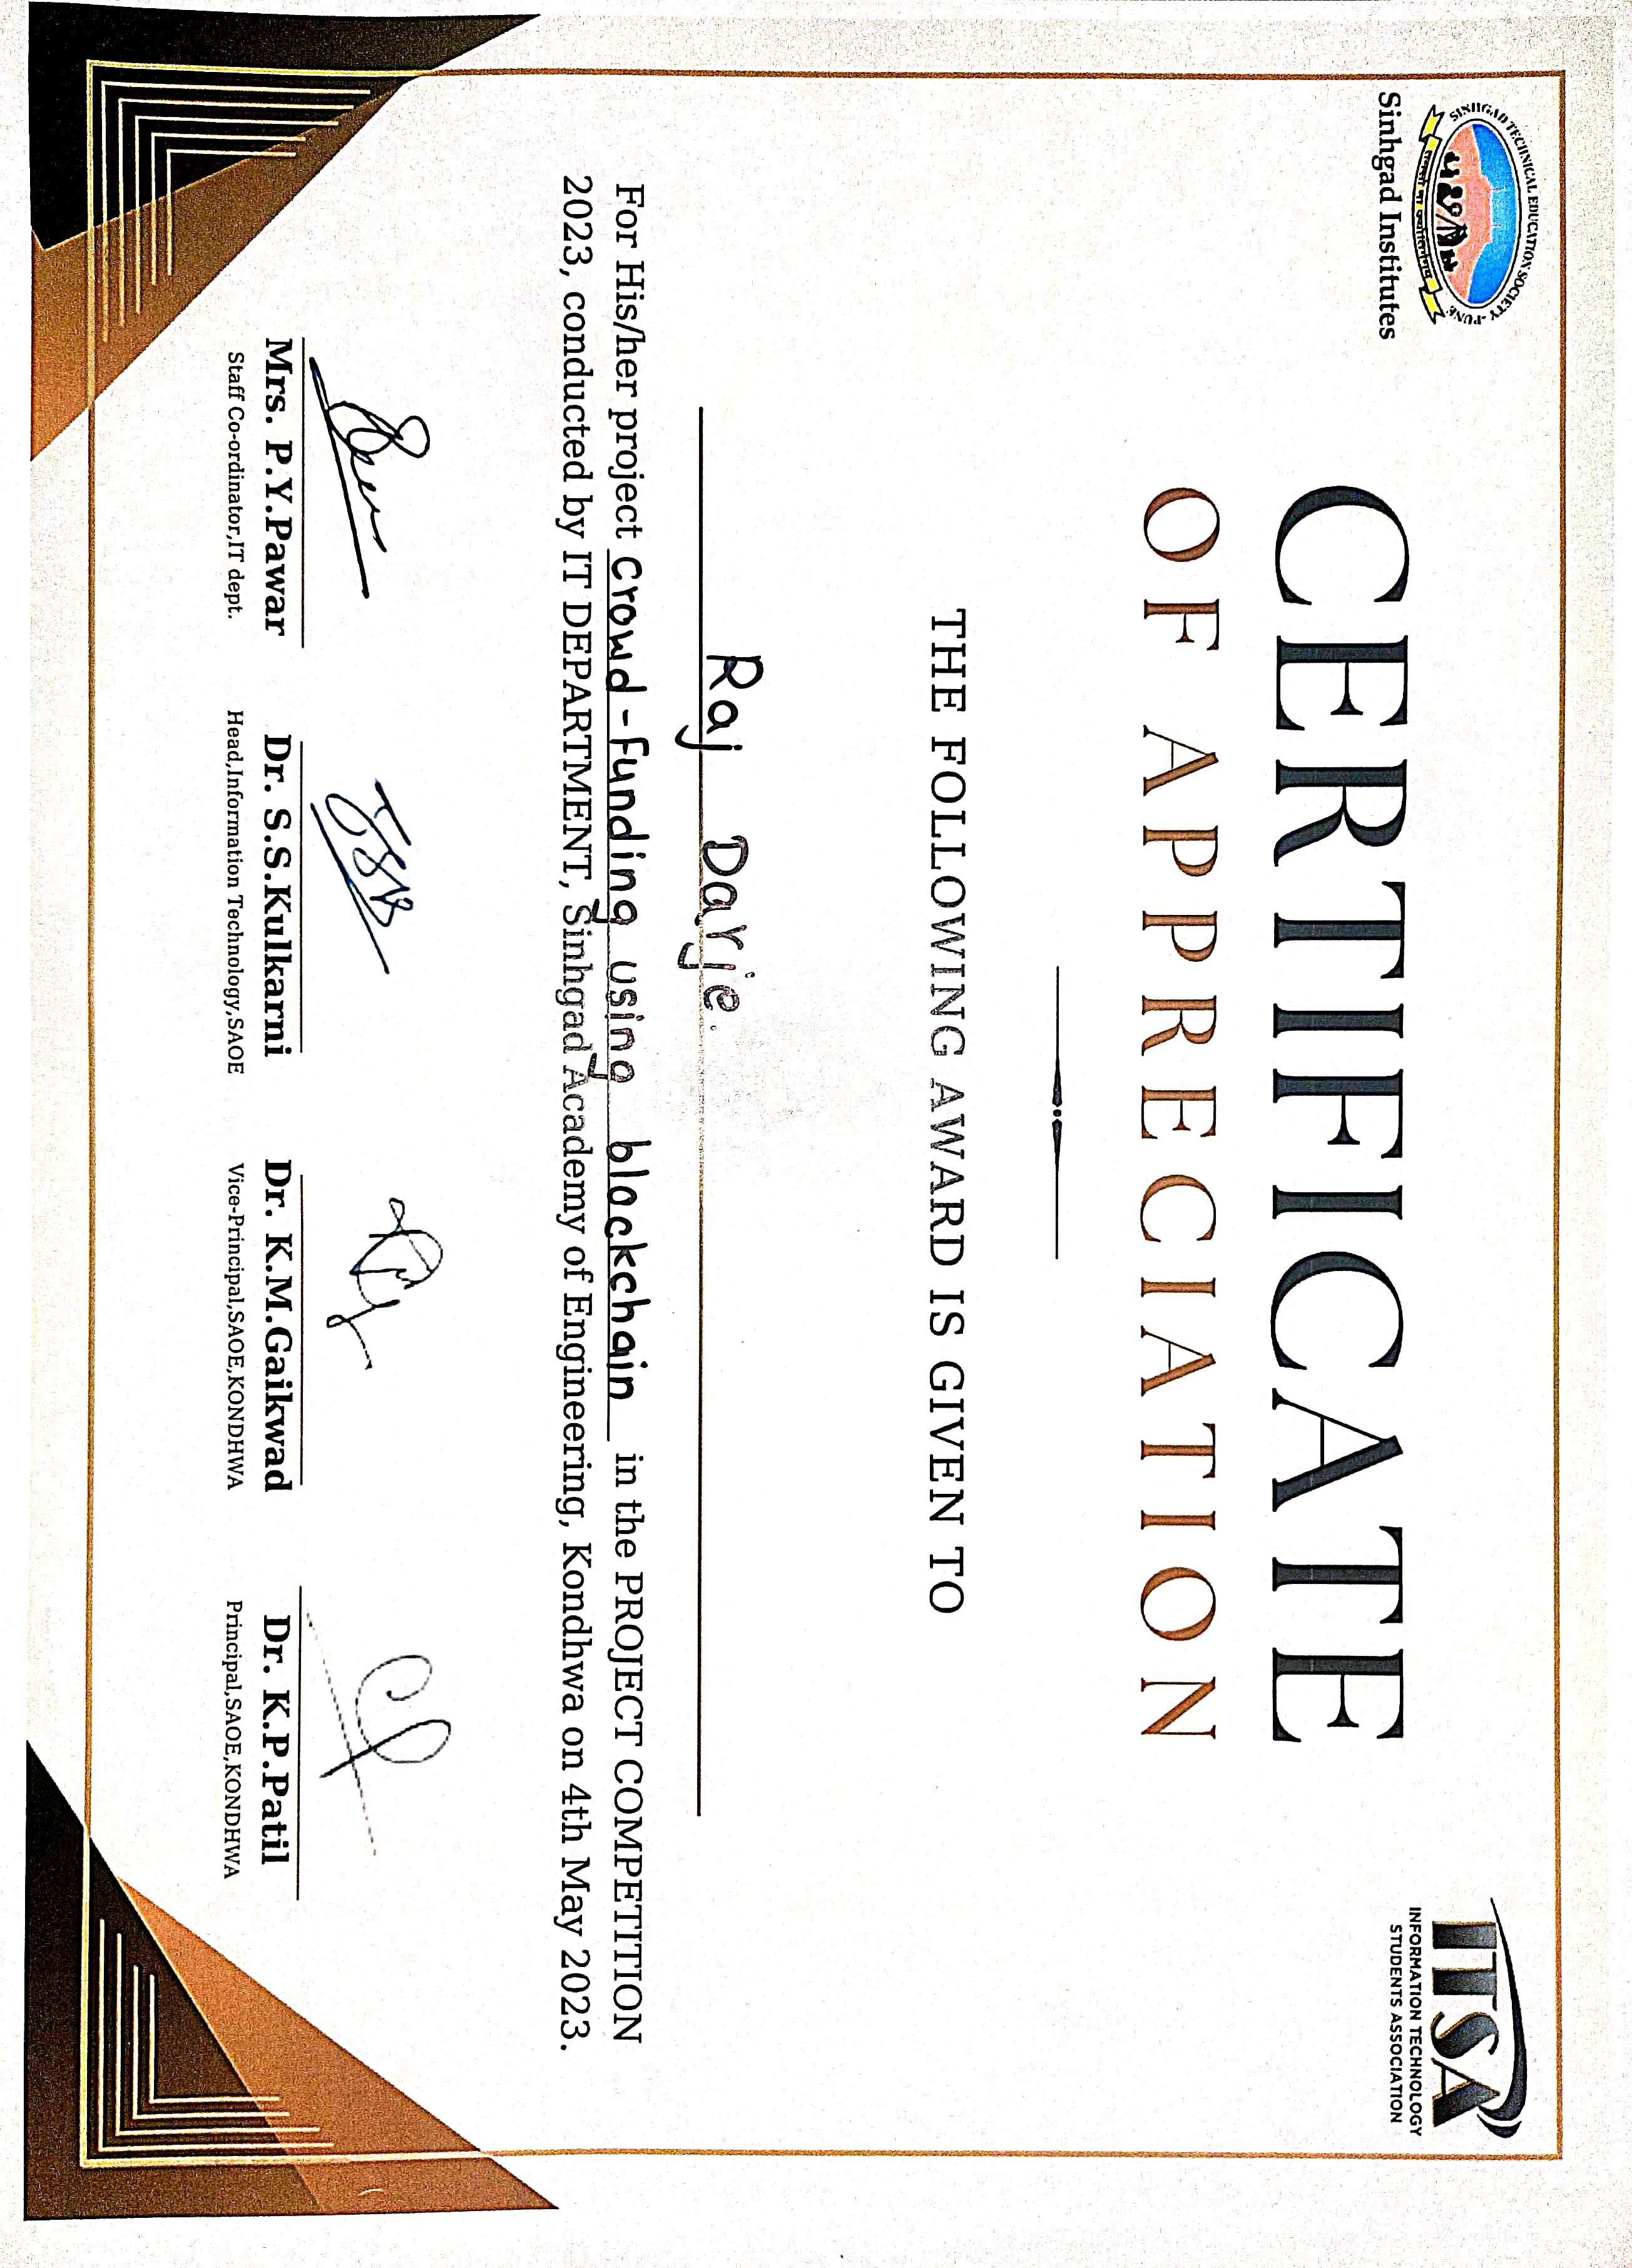 SINHGAD TECHNICAL EDUCATION SOCIETY - PUNE
Sinhgad Institutes
ITSA
INFORMATION TECHNOLOGY
STUDENTS ASSOCIATION
CERTIFICATE
OF APPRECIATION
THE FOLLOWING AWARD IS GIVEN TO
Raj Darje.
For His/her project Crowd-Funding using blockchain in the PROJECT COMPETITION
2023, conducted by IT DEPARTMENT, Sinhgad Academy of Engineering, Kondhwa on 4th May 2023.
Mrs. P.Y.Pawar
Staff Co-ordinator,IT dept.
Dr. S.S.Kulkarni
Head,Information Technology,SAOE
Dr. K.M.Gaikwad
Vice-Principal,SAOE,KONDHWA
Dr. K.P.Patil
Principal,SAOE,KONDHWA